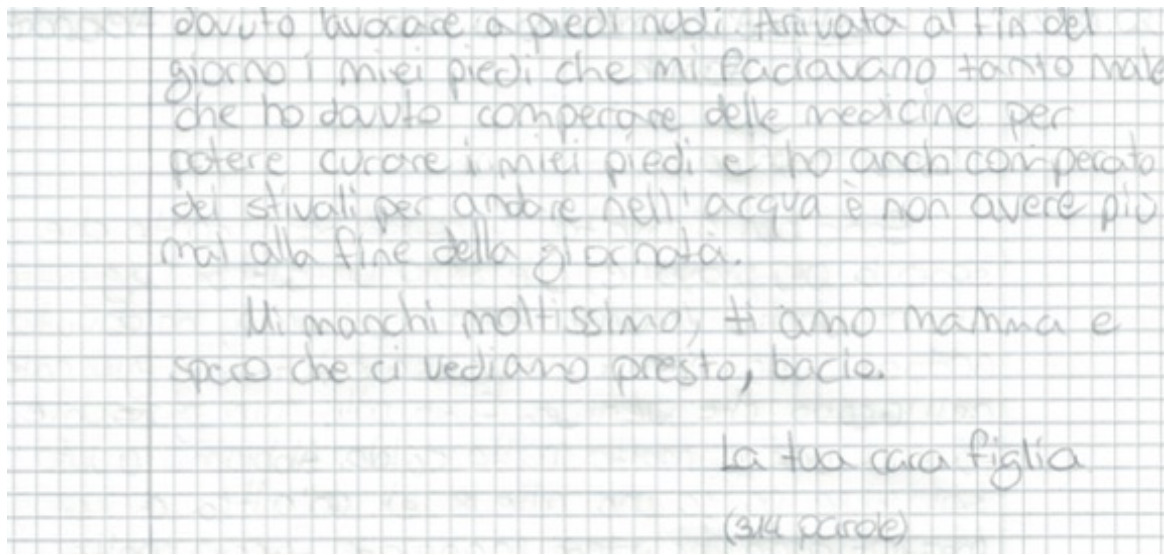 dovuto lavorare a piedi nudi. Arrivata al fin del
giorno i miei piedi che mi faciavano tanto male
che ho dovuto comperare delle medicine per
potere curare i miei piedi e ho anch comperato
dei stivali per andare nell'acqua è non avere più
mal alla fine della giornata.
Mi manchi moltissimo, ti amo mamma e
spero che ci vediamo presto, bacio.
La tua cara figlia
(314 parole)